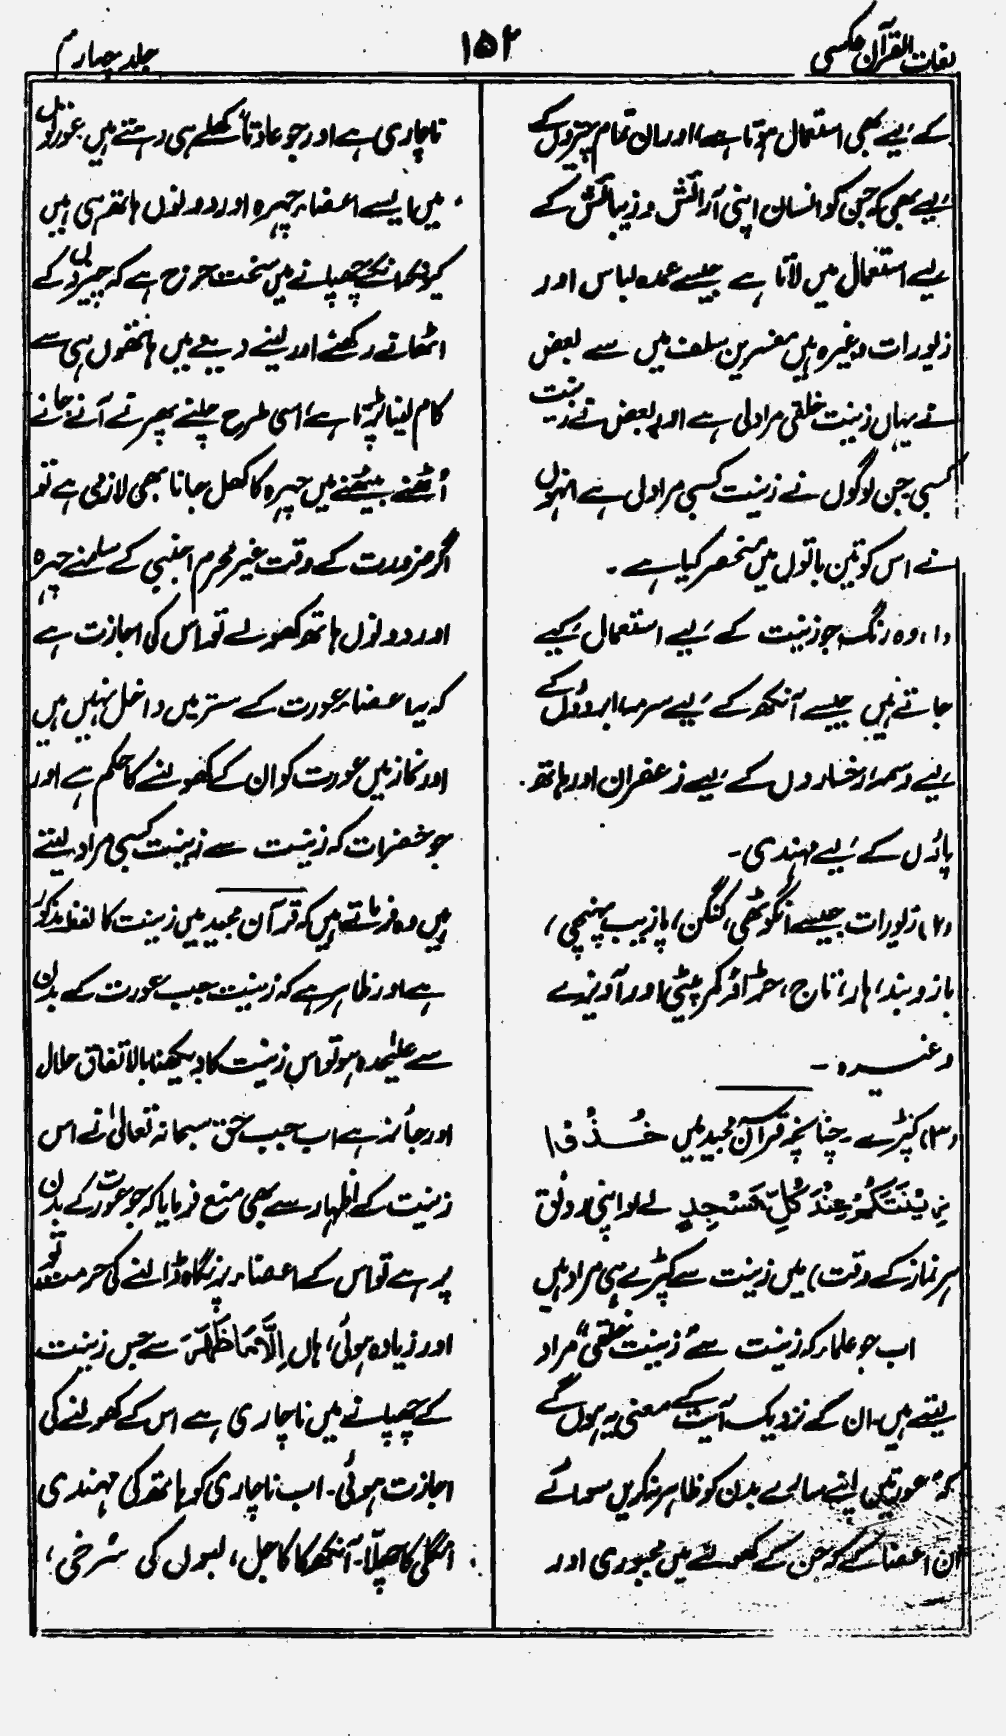 لغات القرآن عکسی
۱۵۲
جلد چہارم
کے لیے بھی استعمال ہوتا ہے، اور ان تمام چیزوں کے
لیے بھی کہ جن کو انسان اپنی آرائش و زیبائش کے
لیے استعمال میں لاتا ہے جیسے عمدہ لباس اور
زیورات وغیرہ ہیں مفسرین سلف میں سے بعض
نے یہاں زینت خلقی مراد لی ہے اور بعض نے زینت
کسبی جن لوگوں نے زینت کسبی مراد لی ہے انہوں
نے اس کو تین باتوں میں منحصر کیا ہے۔
(۱) وہ رنگ جو زینت کے لیے استعمال کیے
جاتے ہیں جیسے آنکھ کے لیے سرمہ ابروؤں کے
لیے وسمہ، رخساروں کے لیے زعفران اور ہاتھ
پاؤں کے لیے مہندی۔
(۲) زیورات جیسے انگوٹھی، کنگن، پازیب پہنچی،
بازو بند، ہار، تاج، کمر پیٹی اور آویزے
وغیرہ۔
(۳) کپڑے۔ چنانچہ قرآن مجید میں خُذُوْا
زِیْنَتَکُمْ عِنْدَ کُلِّ مَسْجِدٍ لے لو اپنی رونق
ہر نماز کے وقت) میں زینت سے کپڑے ہی مراد ہیں
اب جو علماء کہ زینت سے زینت خلقی مراد
لیتے ہیں۔ ان کے نزدیک آیت کے معنی یہ ہوں گے
کہ عورتیں اپنے سارے بدن کو ظاہر نہ کریں سوائے
ان اعضا کے کہ جن کے کھولنے میں مجبوری اور
ناچاری ہے اور جو عادتاً کھلے ہی رہتے ہیں عورتوں
میں ایسے اعضاء چہرہ اور دونوں ہاتھ ہی ہیں
کیونکہ انکے چھپانے میں سخت حرج ہے کہ چیزوں کے
اٹھانے رکھنے اور لینے دینے میں ہاتھوں ہی سے
کام لینا پڑتا ہے، اسی طرح چلنے پھرنے آنے جانے
اُٹھنے بیٹھنے میں چہرہ کا کھل جانا بھی لازمی ہے تو
اگر ضرورت کے وقت غیر محرم اجنبی کے سامنے چہرہ
اور دونوں ہاتھ کھولے تو اس کی اجازت ہے
کہ یہ اعضاء عورت کے ستر میں داخل نہیں ہیں
اور نماز میں عورت کو ان کے کھولنے کا حکم ہے اور
جو حضرات کہ زینت سے زینت کسبی مراد لیتے
ہیں وہ فرماتے ہیں کہ قرآن مجید میں زینت کا لفظ مذکور
ہے اور ظاہر ہے کہ زینت جب عورت کے بدن
سے علیٰحدہ ہو تو اس زینت کا دیکھنا بالاتفاق حلال
اور جائز ہے اب جب حق سبحانہ تعالیٰ نے اس
زینت کے اظہار سے بھی منع فرمایا کہ جو عورت کے بدن
پر ہے تو اس کے اعضاء پر نگاہ ڈالنے کی حرمت تو
اور زیادہ ہوئی، ہاں اِلَّا مَا ظَهَرَ سے جس زینت
کے چھپانے میں ناچاری ہے اس کے کھولنے کی
اجازت ہوئی۔ اب ناچاری کو ہاتھ کی مہندی
انگلی کا چھلّا۔ آنکھ کا کاجل، لبوں کی سُرخی،